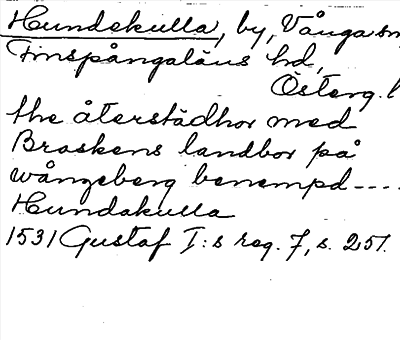 Hundekulla, by, Vånga sn
Finspångaläns hd,
Österg. l
the återstädhor med
Braskens landbor på
wångeberg benempd----
Hundakulla
1531 Gustaf I:s reg. 7, s. 251.